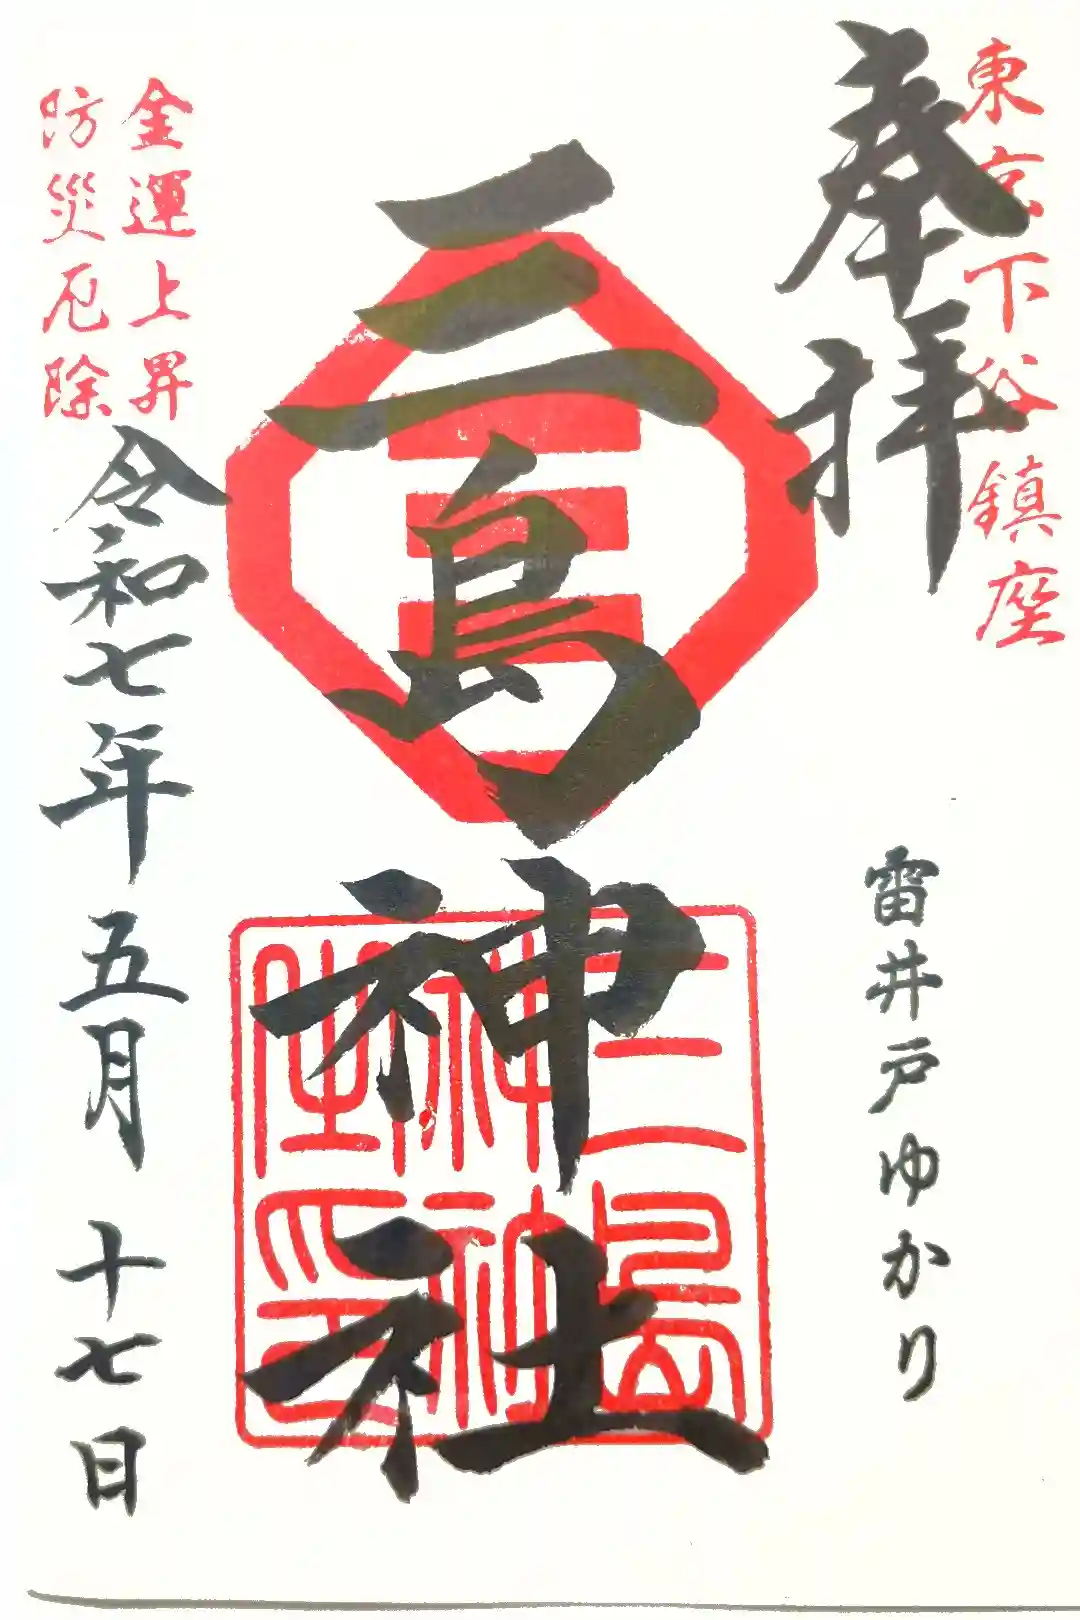 東京下谷鎮座
奉拝
雷井戸ゆかり
三島神社
三島神社之印
金運上昇
防災厄除
令和七年五月十七日